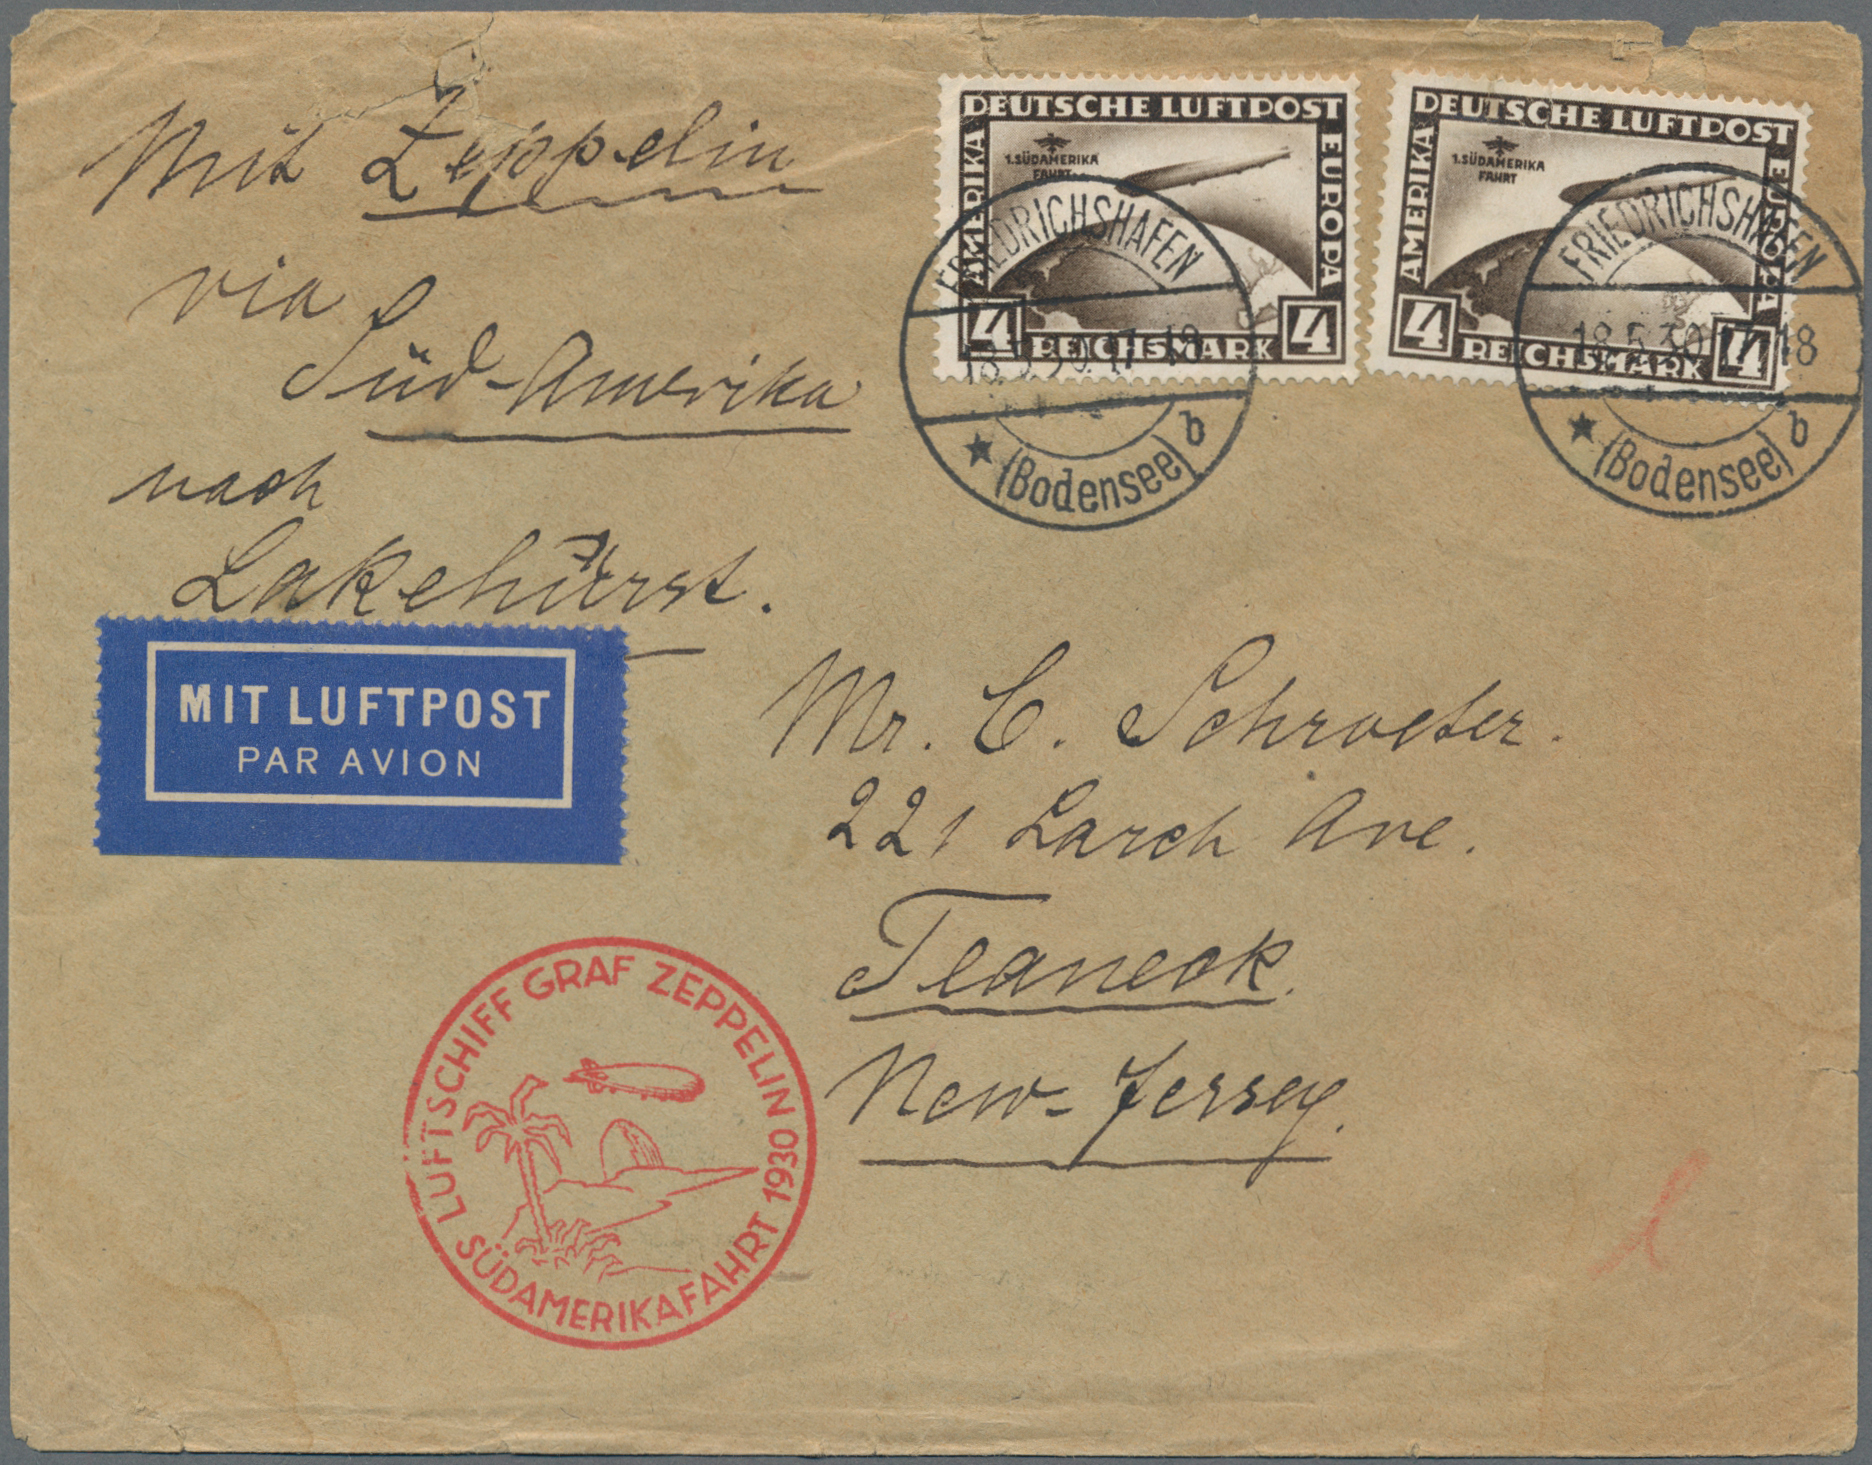 Mit Zeppelin
via
Süd-Amerika
nach
Lakehurst.
DEUTSCHE LUFTPOST
AMERIKA
EUROPA
1. SÜDAMERIKA
FAHRT
4 REICHSMARK 4
DEUTSCHE LUFTPOST
AMERIKA
EUROPA
1. SÜDAMERIKA
FAHRT
4 REICHSMARK 4
FRIEDRICHSHAFEN
18.5.30.17-18
★ (Bodensee) b
FRIEDRICHSHAFEN
18.5.30.17-18
★ (Bodensee) b
MIT LUFTPOST
PAR AVION
Mr. C. Schroeter.
221 Larch Ave.
Teaneck.
New-Jersey.
LUFTSCHIFF GRAF ZEPPELIN
SÜDAMERIKAFAHRT 1930